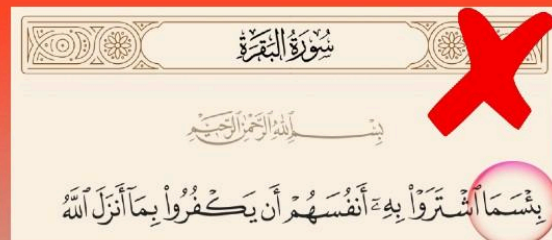 سُورَةُ البَقَرَةِ
بِسْمِ ٱللَّهِ ٱلرَّحْمَٰنِ ٱلرَّحِيمِ
بِئۡسَمَا ٱشۡتَرَوۡاْ بِهِۦٓ أَنفُسَهُمۡ أَن يَكۡفُرُواْ بِمَآ أَنزَلَ ٱللَّهُ